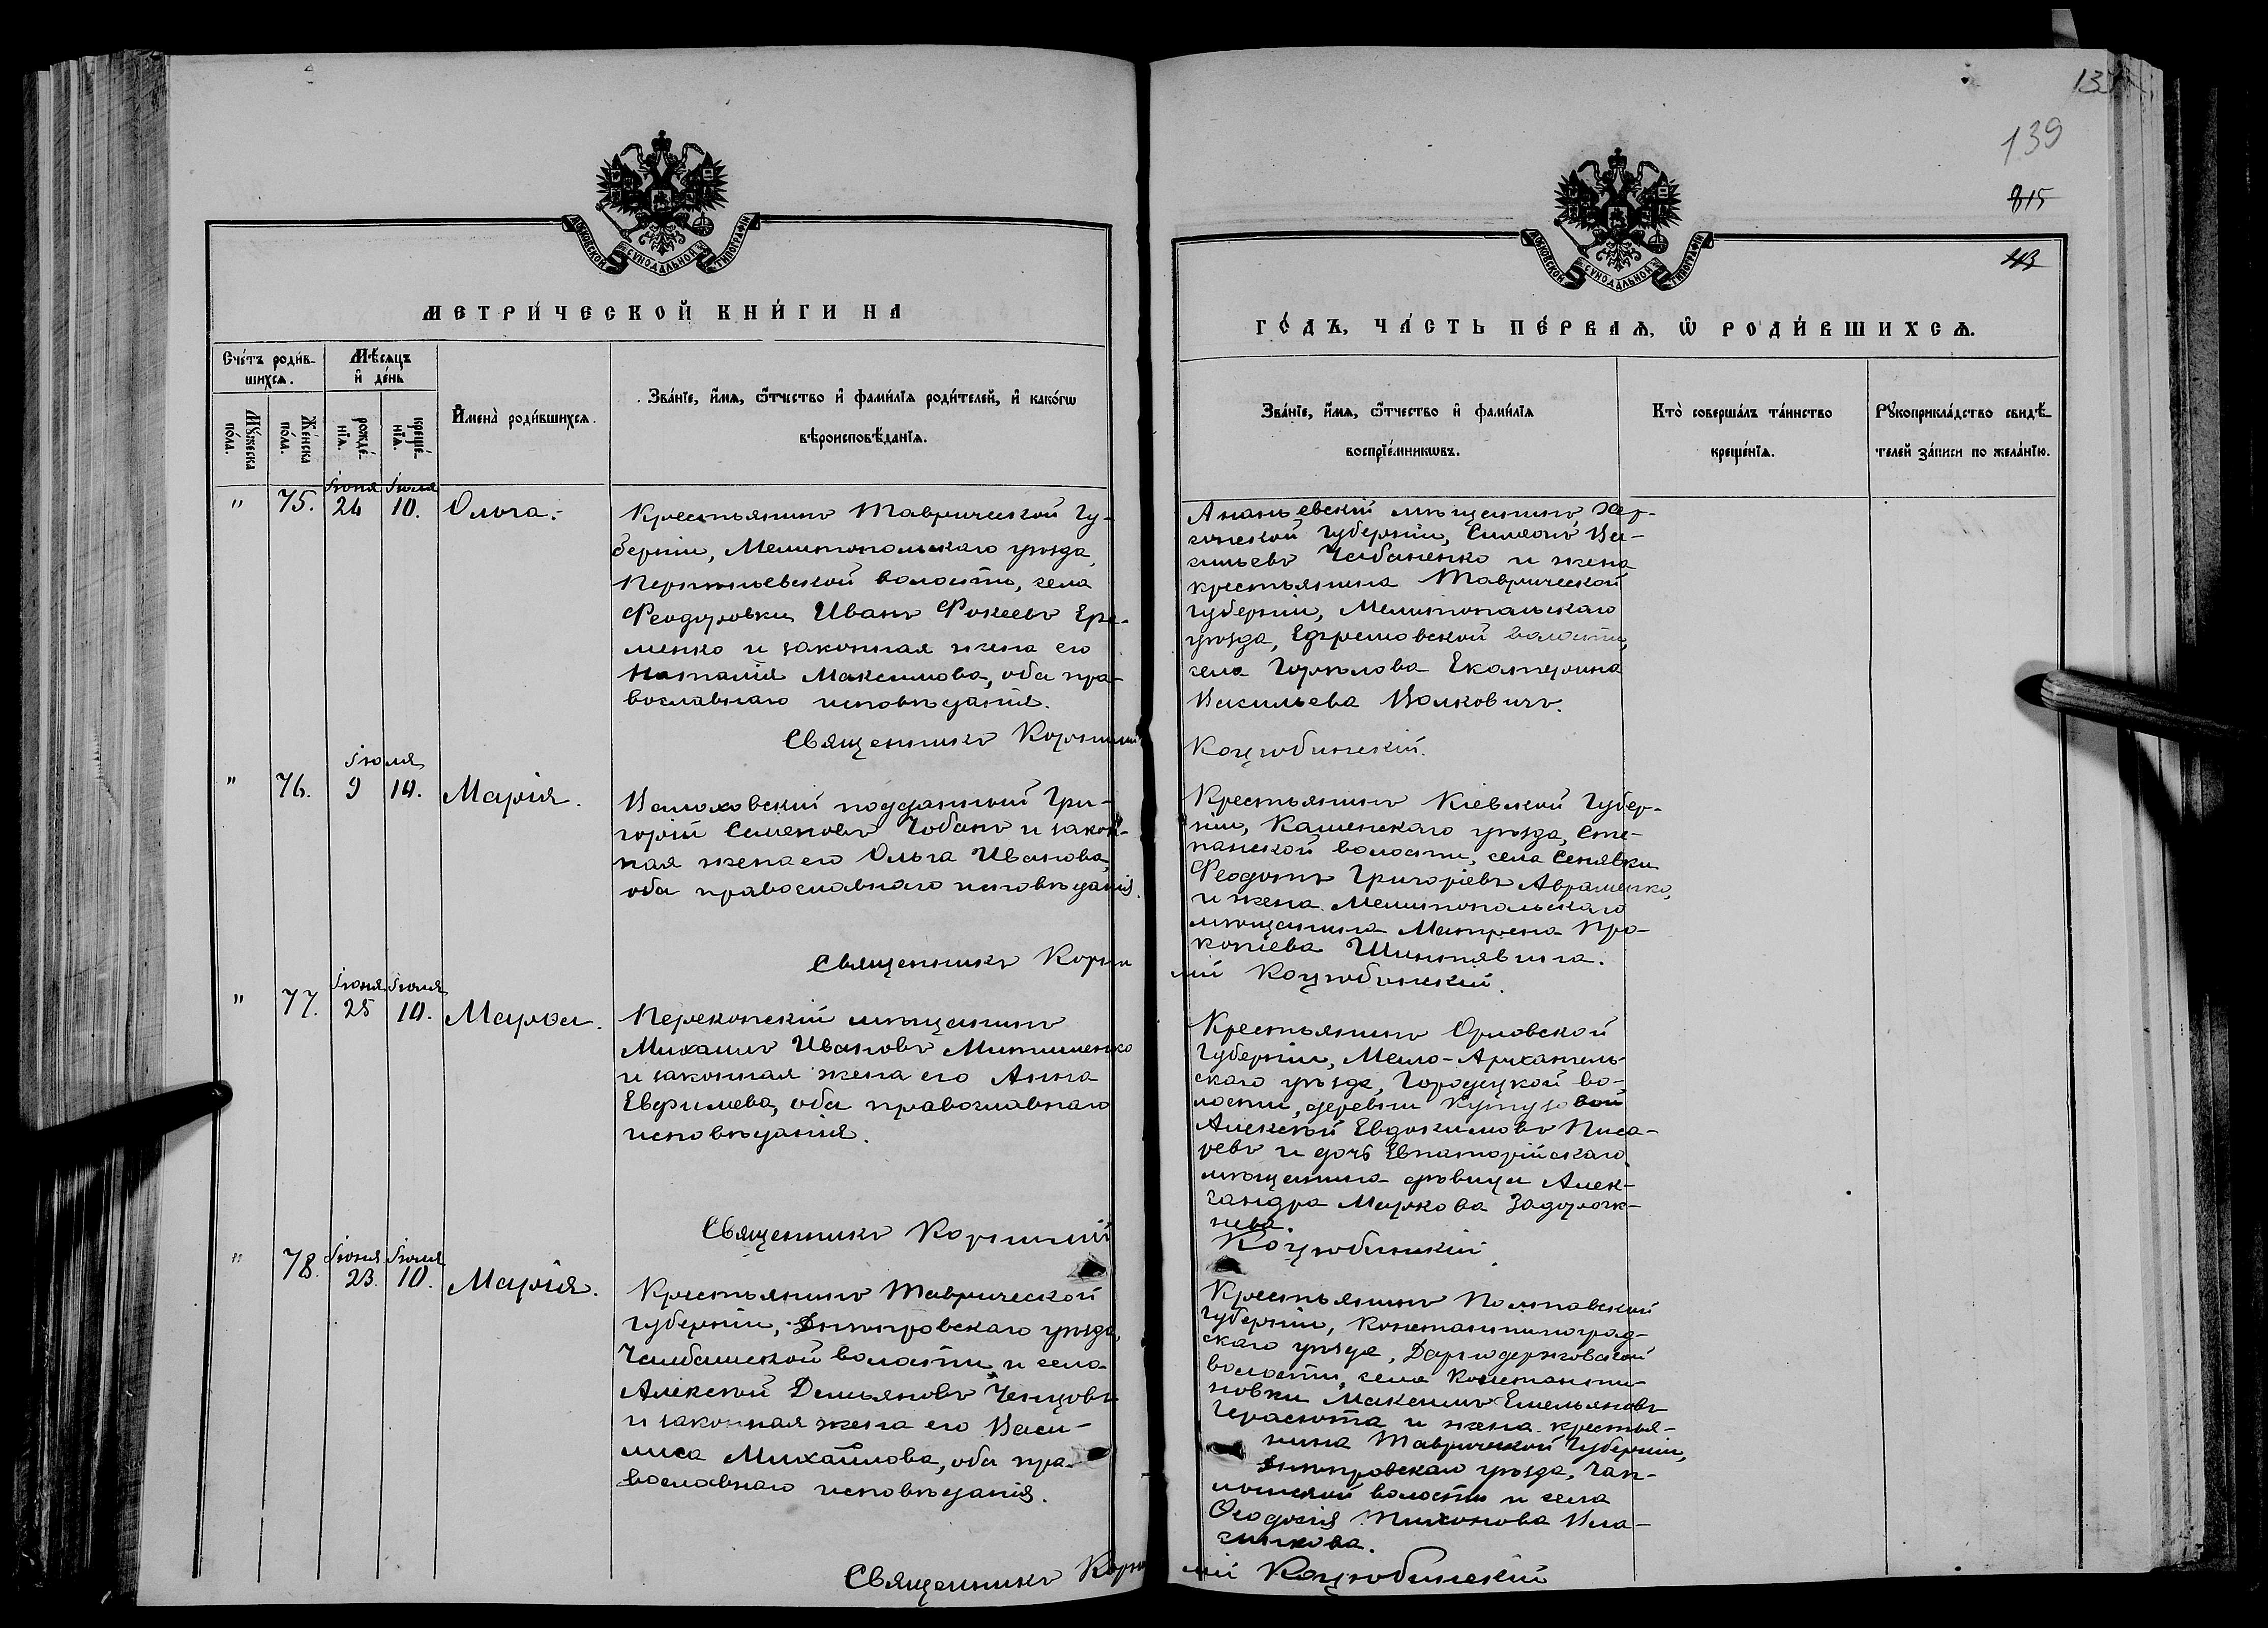 137
139
815
113
МОСКОВСКОЙ СѴНОДАЛЬНОЙ ТИПОГРАФІИ
МОСКОВСКОЙ СѴНОДАЛЬНОЙ ТИПОГРАФІИ
МЕТРИ́ЧЕСКОЙ КНИ́ГИ НА
ГО́ДЪ, ЧА́СТЬ ПЕ́РВАѦ, Ѡ҆ РОДИ́ВШИХСѦ.
Сче́тъ роди́в-
шихсѧ.
Мѣ́сяцъ
и҆ де́нь
Мꙋ́жеска
по́ла.
Же́нска
по́ла.
рожде́-
нїѧ.
креще́-
нїѧ.
И҆мена̀ роди́вшихсѧ.
Зва́нїе, и҆́мѧ, ѻ҆́тчество и҆ фами́лїѧ роди́телей, и҆ како́гѡ
вѣроисповѣ́данїѧ.
Зва́нїе, и҆́мѧ, ѻ҆́тчество и҆ фами́лїѧ
воспрїе́мникѡвъ.
Кто̀ соверша́лъ та́инство
креще́нїѧ.
Рꙋкоприкла́дство свидѣ́-
телей за́писи по жела́нїю.
" 75. Іюня 24 Іюля 10. Ольга.
Крестьянинъ Таврической Гу-
берніи, Мелитопольскаго уѣзда,
волости, села
Феодоровки Иванъ Фокеевъ Ере-
менко и законная жена его
Наталія Максимова, оба пра-
вославнаго исповѣданія.
Священникъ Корнилій
Ананьевскій мѣщанинъ, Хер-
сонской Губерніи, Симеонъ Ва-
сильевъ Чабаненко и жена
крестьянина Таврической
Губерніи, Мелитопольскаго
уѣзда, Ефремовской волости,
села Горѣлова Екатерина
Васильева Волковичъ.
Коцюбинскій.
" 76. Іюля 9 10. Марія.
Валаховскій подданный Гри-
горій Семеновъ Чобанъ и закон-
ная жена его Ольга Иванова,
оба православнаго исповѣданія.
Священникъ Корни
Крестьянинъ Кіевской Губер-
ніи, Каневскаго уѣзда, Сте-
панской волости, села Сенявки
Феодотъ Григоріевъ Авраменко,
и жена Мелитопольскаго
мѣщанина Матрена Про-
копіева
лій Коцюбинскій.
" 77. Іюня 25 Іюля 10. Марѳа.
Перекопскій мѣщанинъ
Михаилъ Ивановъ Митименко
и законная жена его Анна
Евфимева, оба православнаго
исповѣданія.
Священникъ Корнилій
Крестьянинъ Орловской
Губерніи, Мало-Архангель-
скаго уѣзда, Городецкой во-
лости, деревни Кутузовой
Алексѣй Евдокимовъ Писа-
ревъ и дочь Евпаторійскаго
мѣщанина дѣвица Алек-
сандра Маркова Задорож-
нева.
Коцюбинскій.
" 78. Іюня 23. Іюля 10. Марія.
Крестьянинъ Таврической
губерніи, Днѣпровскаго уѣзда,
Чалбашской волости и села
Алексѣй Демьяновъ Ченцовъ
и законная жена его Васи-
лиса Михайлова, оба пра-
вославнаго исповѣданія.
Священникъ Корни
Крестьянинъ Полтавской
Губерніи, Константиноград-
скаго уѣзда,
волости, села Константи-
новки Максимъ Емельяновъ
Герасюта и жена крестья-
нина Таврической Губерніи,
Днѣпровскаго уѣзда, Чап-
линской волости и села
Ѳеодосія Тихонова Вла-
сикова.
лій Коцюбинскій